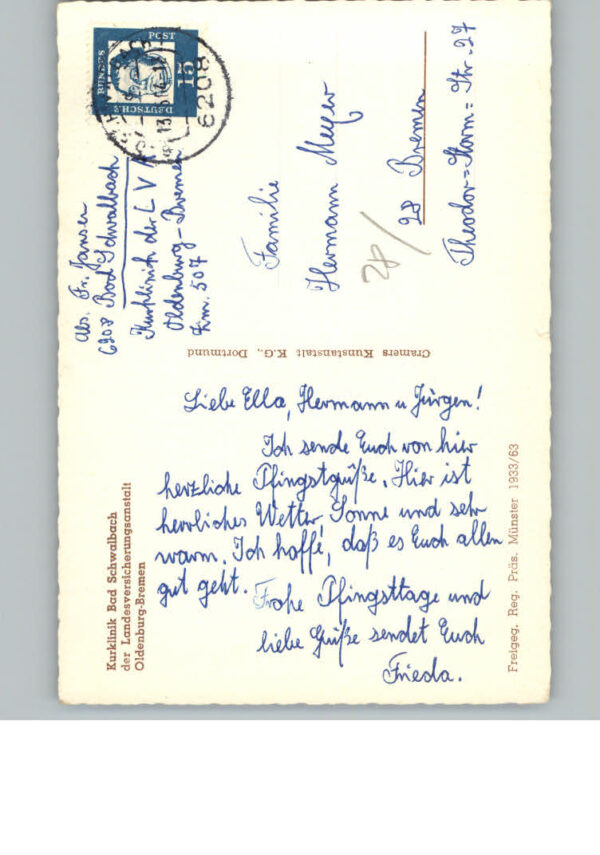 Kurklinik Bad Schwalbach
der Landesversicherungsanstalt
Oldenburg-Bremen
Liebe Ella, Hermann u Jürgen!
Ich sende Euch von hier
herzliche Pfingstgrüße. Hier ist
herrliches Wetter, Sonne und sehr
warm. Ich hoffe, daß es Euch allen
gut geht.
Frohe Pfingsttage und
liebe Grüße sendet Euch
Frieda.
Freigeg. Reg. Präs. Münster 1933/63
Cramers Kunstanstalt K.G., Dortmund
Abs. Fr. Jansen
6208 Bad Schwalbach
Kurklinik der LVA
Oldenburg-Bremen
Zm. 507
DEUTSCHE
BUNDES
POST
15
6208
Familie
Hermann Meyer
28 Bremen
Theodor=Storm=Str. 27
28/